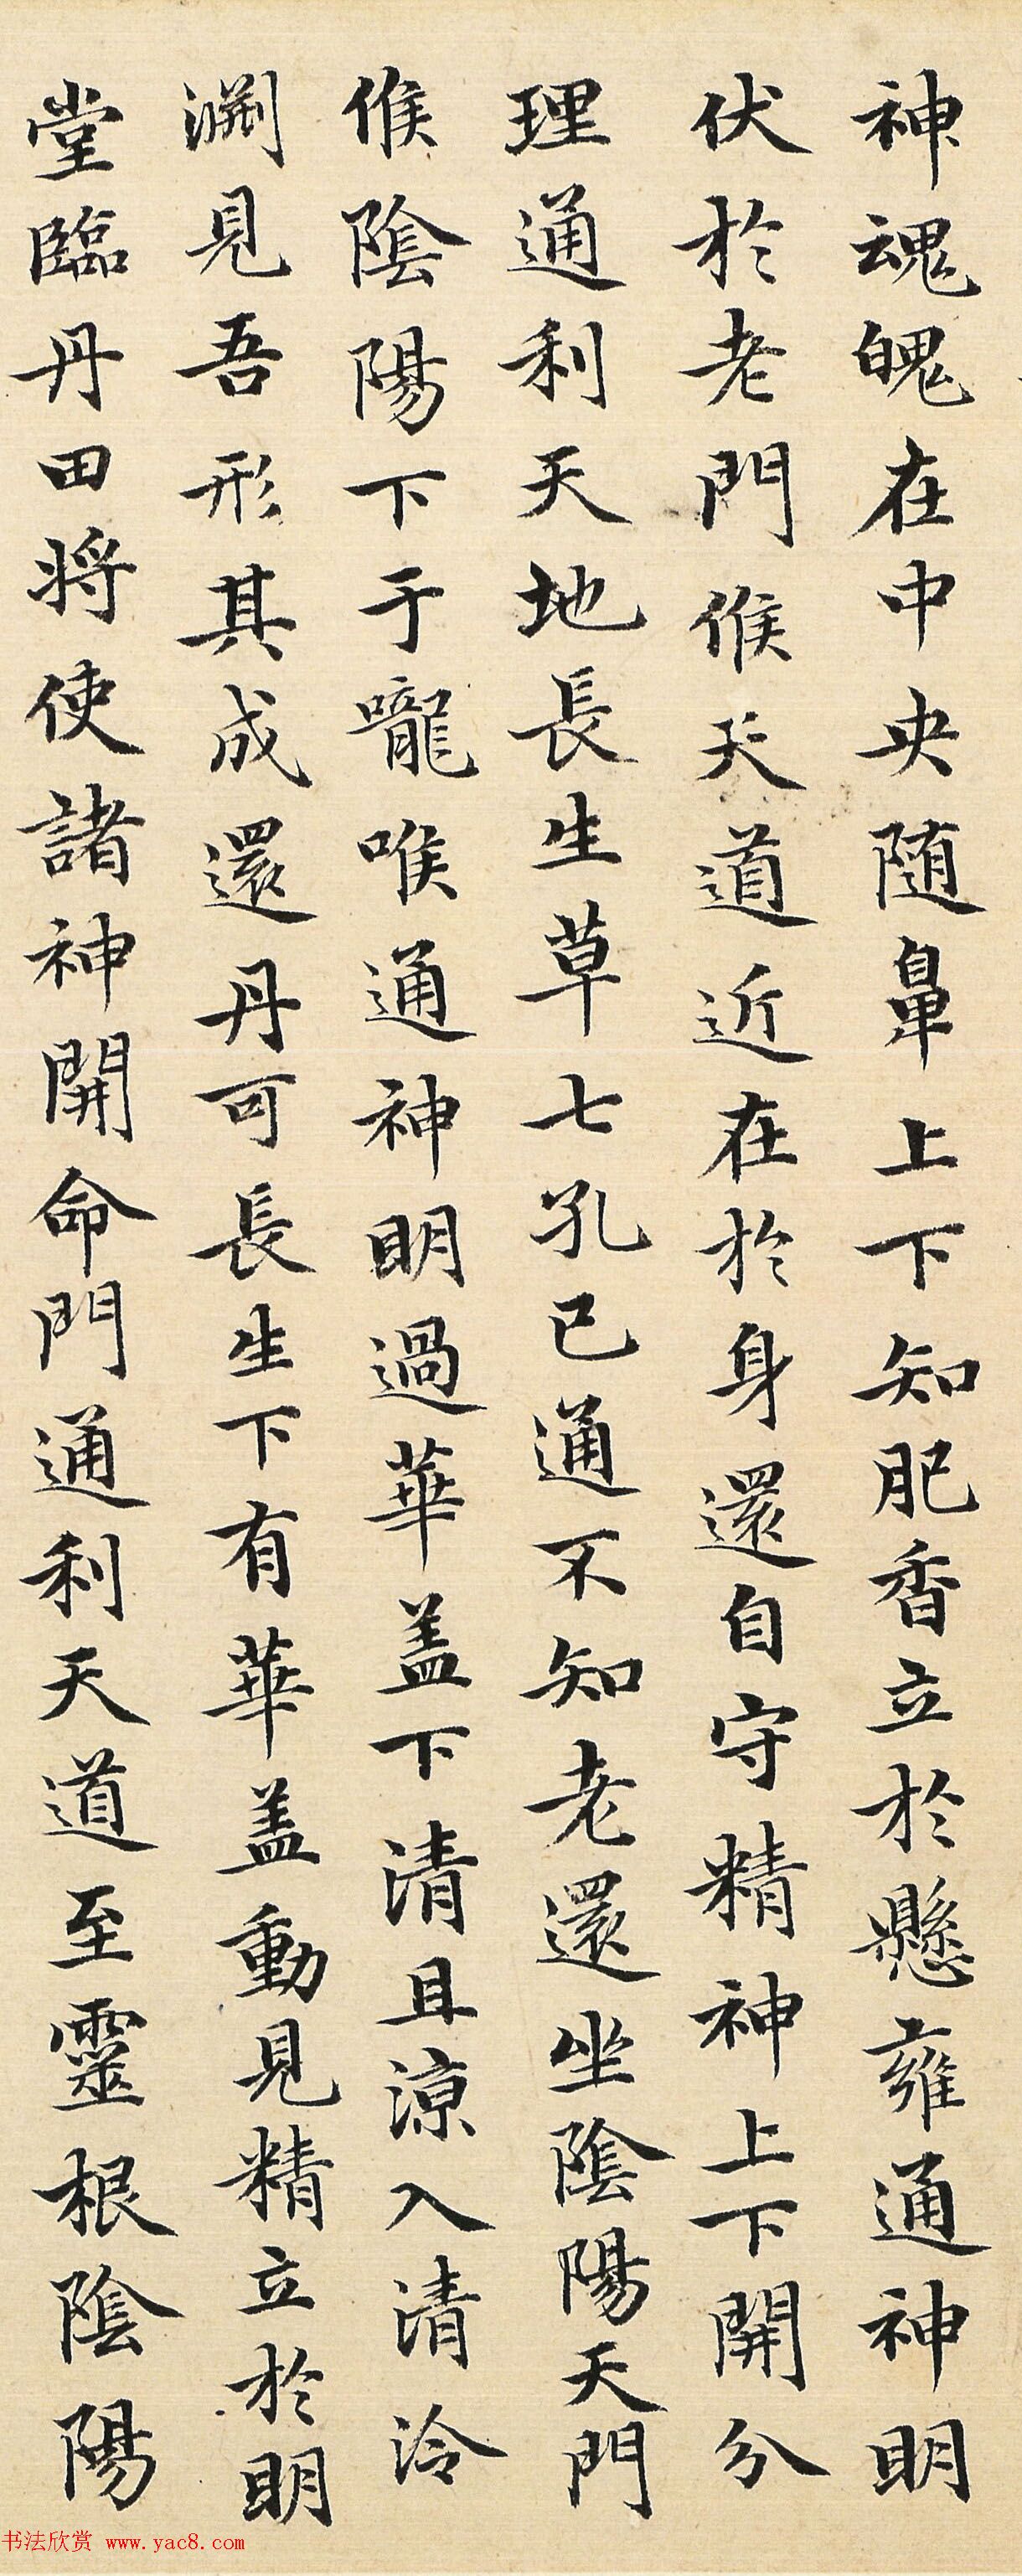 神魂魄在中央随鼻上下知肥香立於懸雍通神明
伏於老門候天道近在於身還自守精神上下開分
理通利天地長生草七孔已通不知老還坐陰陽天門
候陰陽下于嚨喉通神明過華盖下清且涼入清泠
淵見吾形其成還丹可長生下有華盖動見精立於明
堂臨丹田将使諸神開命門通利天道至靈根陰陽
书法欣赏 www.yac8.com